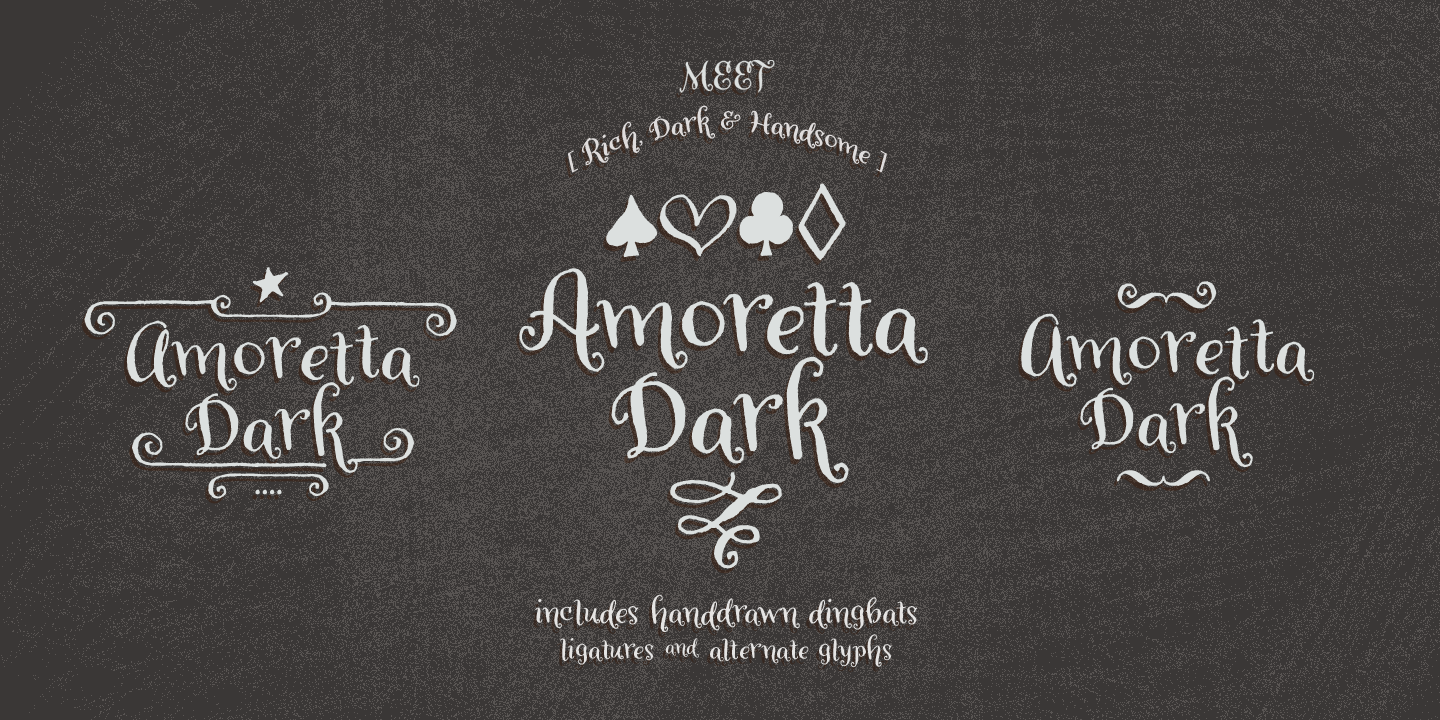 MEET
[ Rich, Dark & Handsome ]
Amoretta
Dark
Amoretta
Dark
Amoretta
Dark
includes handdrawn dingbats
ligatures and alternate glyphs